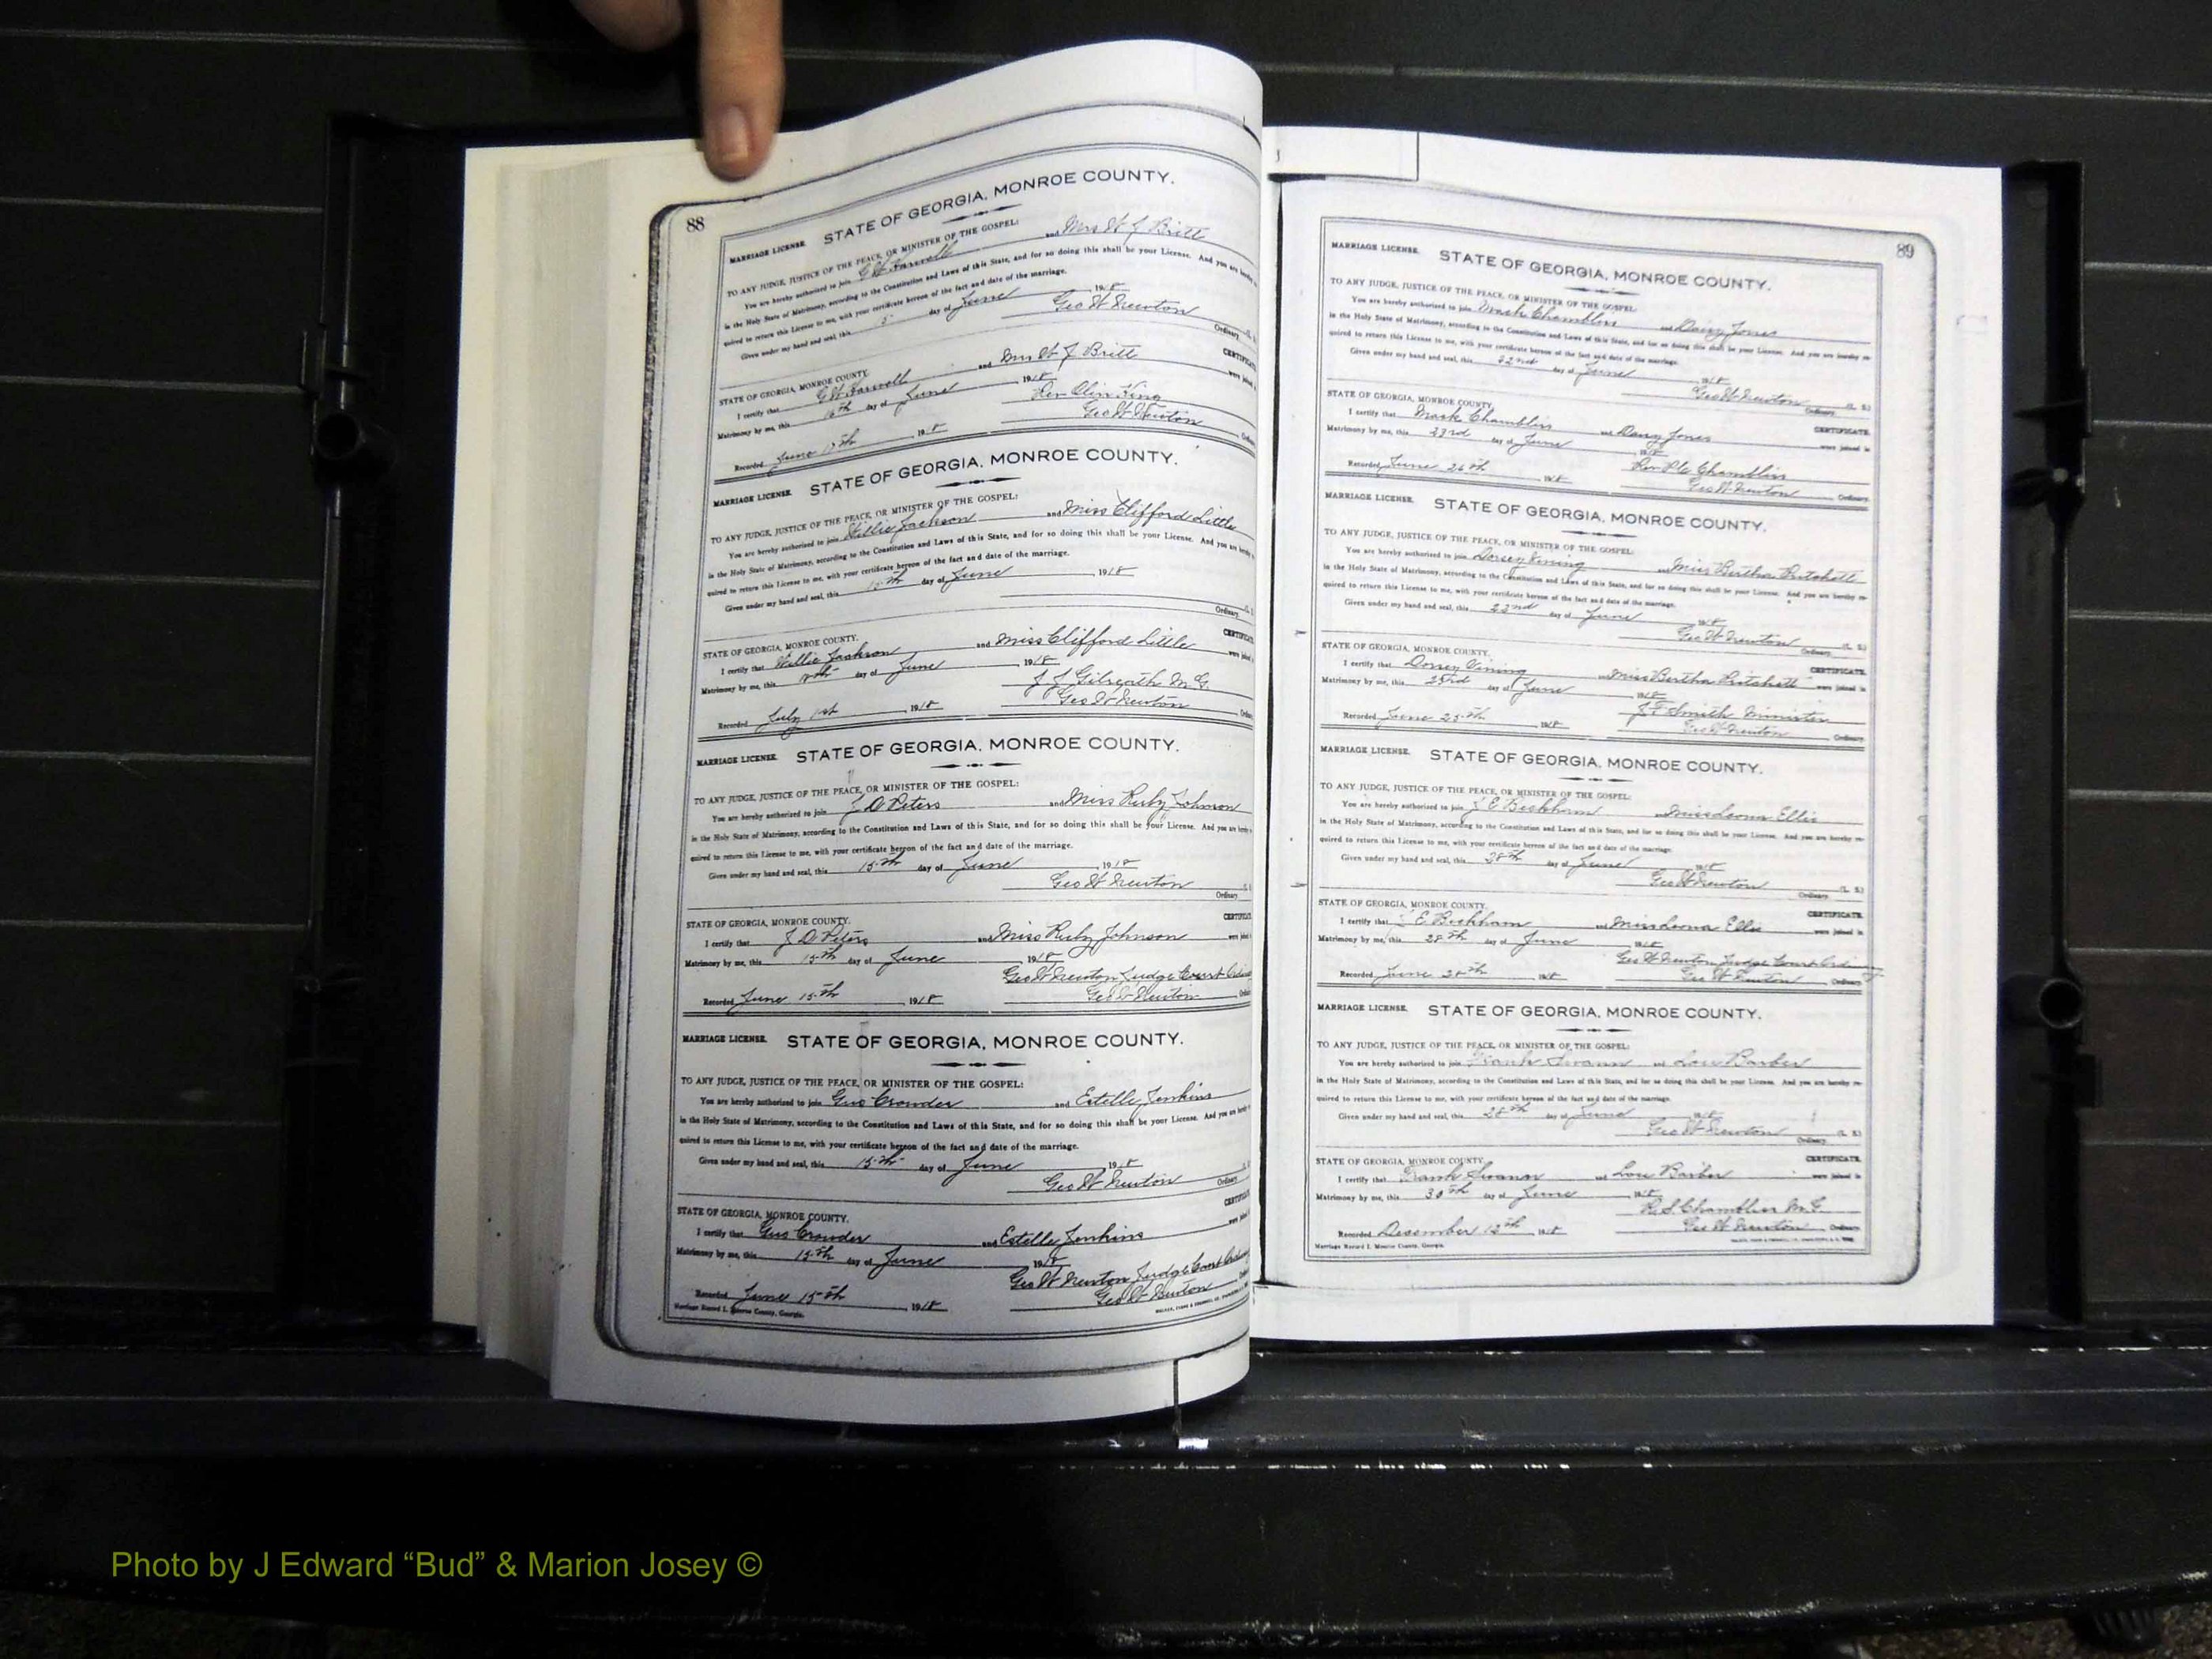 88
MARRIAGE LICENSE. STATE OF GEORGIA, MONROE COUNTY.
TO ANY JUDGE, JUSTICE OF THE PEACE, OR MINISTER OF THE GOSPEL:
You are hereby authorized to join G W and Mrs W J Britt
in the Holy State of Matrimony, according to the Constitution and Laws of this State, and for so doing this shall be your License. And you are hereby
quired to return this License to me, with your certificate hereon of the fact and date of the marriage.
Given under my hand and seal, this 5 day of June 1918
Geo W Newton
Ordinary
STATE OF GEORGIA, MONROE COUNTY. CERTIFICATE
I certify that G W and Mrs W J Britt were joined
Matrimony by me, this 16th day of June 1918
Rev Olin King
Recorded June 17th 1918 Geo W Newton
MARRIAGE LICENSE. STATE OF GEORGIA, MONROE COUNTY.
TO ANY JUDGE, JUSTICE OF THE PEACE, OR MINISTER OF THE GOSPEL:
You are hereby authorized to join Willie Jackson and Miss Clifford Little
in the Holy State of Matrimony, according to the Constitution and Laws of this State, and for so doing this shall be your License. And you are hereby
quired to return this License to me, with your certificate hereon of the fact and date of the marriage.
Given under my hand and seal, this 15th day of June 1918
Ordinary
STATE OF GEORGIA, MONROE COUNTY. CERTIFICATE
I certify that Willie Jackson and Miss Clifford Little were joined
Matrimony by me, this day of June 1918
J J Gilreath M.G.
Recorded July 1st 1918 Geo W Newton
MARRIAGE LICENSE. STATE OF GEORGIA, MONROE COUNTY.
TO ANY JUDGE, JUSTICE OF THE PEACE, OR MINISTER OF THE GOSPEL:
You are hereby authorized to join J D Peters and Miss Ruby Johnson
in the Holy State of Matrimony, according to the Constitution and Laws of this State, and for so doing this shall be your License. And you are hereby
quired to return this License to me, with your certificate hereon of the fact and date of the marriage.
Given under my hand and seal, this 15th day of June 1918
Geo W Newton
Ordinary
STATE OF GEORGIA, MONROE COUNTY. CERTIFICATE
I certify that J D Peters and Miss Ruby Johnson were joined
Matrimony by me, this 15th day of June 1918
Geo W Newton Judge Court Ordinary
Recorded June 15th 1918 Geo W Newton
MARRIAGE LICENSE. STATE OF GEORGIA, MONROE COUNTY.
TO ANY JUDGE, JUSTICE OF THE PEACE, OR MINISTER OF THE GOSPEL:
You are hereby authorized to join Gus Crowder and Estelle Jenkins
in the Holy State of Matrimony, according to the Constitution and Laws of this State, and for so doing this shall be your License. And you are hereby
quired to return this License to me, with your certificate hereon of the fact and date of the marriage.
Given under my hand and seal, this 15th day of June 1918
Geo W Newton Ordinary
STATE OF GEORGIA, MONROE COUNTY. CERTIFICATE
I certify that Gus Crowder and Estelle Jenkins were joined
Matrimony by me, this 15th day of June 1918
Geo W Newton Judge Court Ordinary
Recorded June 15th 1918 Geo W Newton
Marriage Record I. Monroe County, Georgia.
89
MARRIAGE LICENSE. STATE OF GEORGIA, MONROE COUNTY.
TO ANY JUDGE, JUSTICE OF THE PEACE, OR MINISTER OF THE GOSPEL:
You are hereby authorized to join Mark Chamblin and Daisy Jones
in the Holy State of Matrimony, according to the Constitution and Laws of this State, and for so doing this shall be your License. And you are hereby re-
quired to return this License to me, with your certificate hereon of the fact and date of the marriage.
Given under my hand and seal, this 22nd day of June 1918
Geo W Newton (L. S.)
Ordinary.
STATE OF GEORGIA, MONROE COUNTY. CERTIFICATE.
I certify that Mark Chamblin and Daisy Jones were joined in
Matrimony by me, this 23rd day of June 1918
Rev Chamblin
Recorded June 26th 1918 Geo W Newton Ordinary.
MARRIAGE LICENSE. STATE OF GEORGIA, MONROE COUNTY.
TO ANY JUDGE, JUSTICE OF THE PEACE, OR MINISTER OF THE GOSPEL:
You are hereby authorized to join Dorsey Vining and Miss Bertha Pritchett
in the Holy State of Matrimony, according to the Constitution and Laws of this State, and for so doing this shall be your License. And you are hereby re-
quired to return this License to me, with your certificate hereon of the fact and date of the marriage.
Given under my hand and seal, this 22nd day of June 1918
Geo W Newton (L. S.)
Ordinary.
STATE OF GEORGIA, MONROE COUNTY. CERTIFICATE.
I certify that Dorsey Vining and Miss Bertha Pritchett were joined in
Matrimony by me, this 23rd day of June 1918
J F Smith Minister
Recorded June 25th 1918 Geo W Newton Ordinary.
MARRIAGE LICENSE. STATE OF GEORGIA, MONROE COUNTY.
TO ANY JUDGE, JUSTICE OF THE PEACE, OR MINISTER OF THE GOSPEL:
You are hereby authorized to join J E Beckham and Miss Leona Ellis
in the Holy State of Matrimony, according to the Constitution and Laws of this State, and for so doing this shall be your License. And you are hereby re-
quired to return this License to me, with your certificate hereon of the fact and date of the marriage.
Given under my hand and seal, this 28th day of June 1918
Geo W Newton (L. S.)
Ordinary.
STATE OF GEORGIA, MONROE COUNTY. CERTIFICATE.
I certify that J E Beckham and Miss Leona Ellis were joined in
Matrimony by me, this 28th day of June 1918
Geo W Newton Judge Court Ordinary
Recorded June 28th 1918 Geo W Newton Ordinary.
MARRIAGE LICENSE. STATE OF GEORGIA, MONROE COUNTY.
TO ANY JUDGE, JUSTICE OF THE PEACE, OR MINISTER OF THE GOSPEL:
You are hereby authorized to join Frank Swann and Lou Barber
in the Holy State of Matrimony, according to the Constitution and Laws of this State, and for so doing this shall be your License. And you are hereby re-
quired to return this License to me, with your certificate hereon of the fact and date of the marriage.
Given under my hand and seal, this 28th day of June 1918
Geo W Newton (L. S.)
Ordinary.
STATE OF GEORGIA, MONROE COUNTY. CERTIFICATE.
I certify that Frank Swann and Lou Barber were joined in
Matrimony by me, this 30th day of June 1918
R S Chamblin M.G.
Recorded December 12th 1918 Geo W Newton Ordinary.
Marriage Record I. Monroe County, Georgia.
Photo by J Edward “Bud” & Marion Josey ©